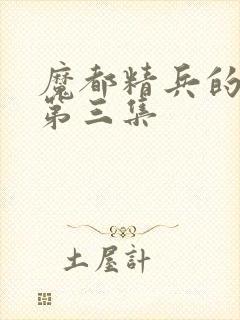 魔都精兵的
第三集
土屋計